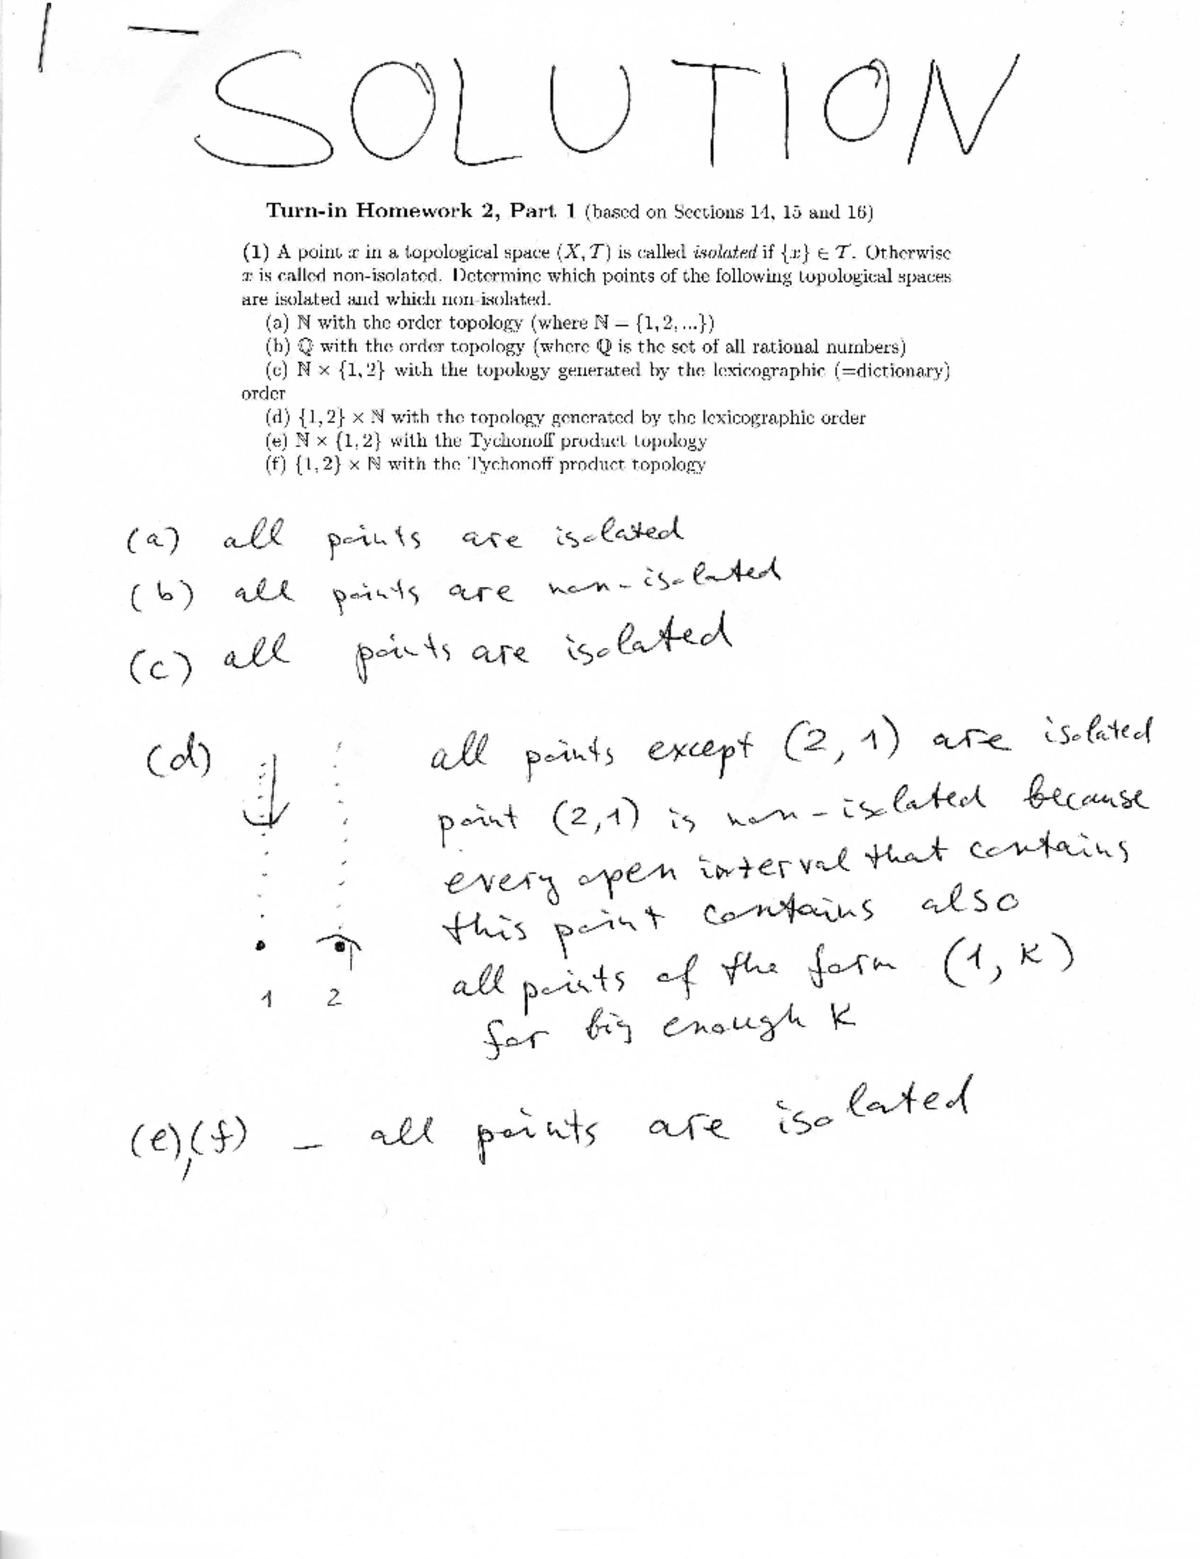 SOLUTION
Turn-in Homework 2, Part 1 (based on Sections 14, 15 and 16)
(1) A point x in a topological space (X, T) is called isolated if {x} ∈ T. Otherwise
x is called non-isolated. Determine which points of the following topological spaces
are isolated and which non-isolated.
(a) ℕ with the order topology (where ℕ = {1, 2, ...})
(b) ℚ with the order topology (where ℚ is the set of all rational numbers)
(c) ℕ × {1, 2} with the topology generated by the lexicographic (=dictionary)
order
(d) {1, 2} × ℕ with the topology generated by the lexicographic order
(e) ℕ × {1, 2} with the Tychonoff product topology
(f) {1, 2} × ℕ with the Tychonoff product topology
(a) all points are isolated
(b) all points are non-isolated
(c) all points are isolated
(d) all points except (2, 1) are isolated
point (2,1) is non-isolated because
every open interval that contains
this point contains also
all points of the form (1, K)
for big enough K
1 2
(e),(f) – all points are isolated